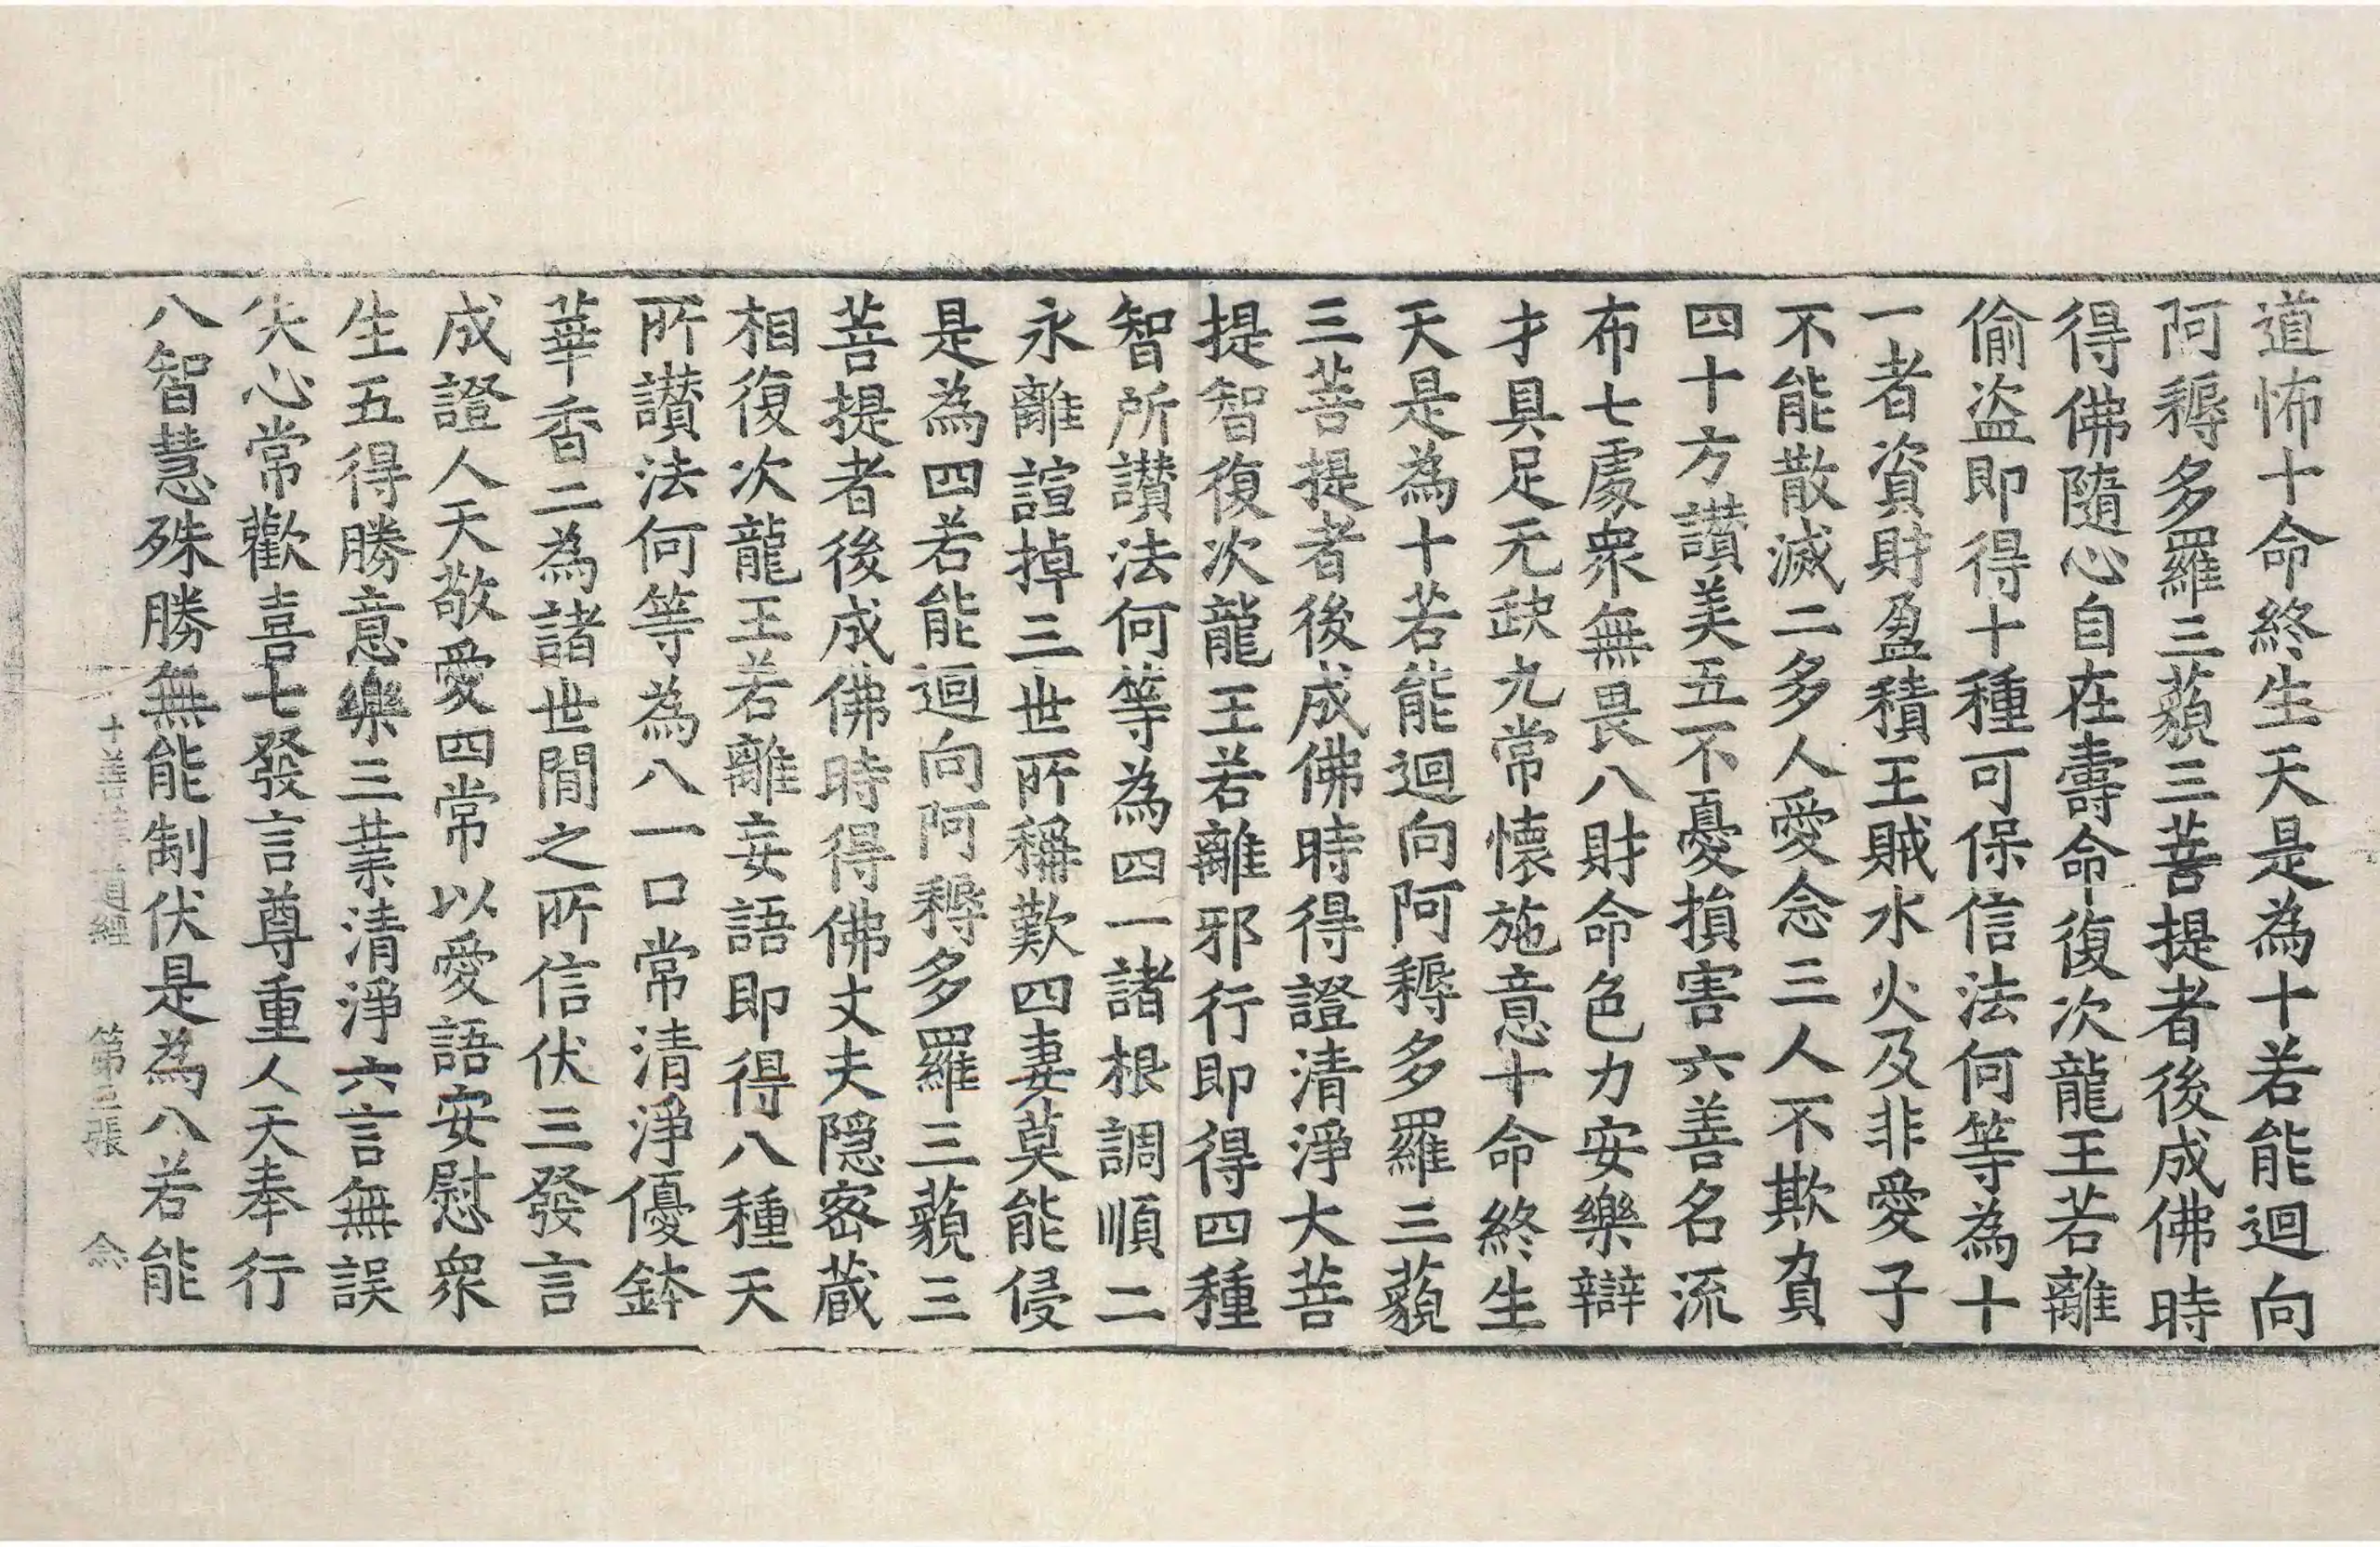 道怖十命終生天是為十若能迴向
阿耨多羅三藐三菩提者後成佛時
得佛隨心自在壽命復次龍王若離
偷盜即得十種可保信法何等為十
一者資財盈積王賊水火及非愛子
不能散滅二多人愛念三人不欺負
四十方讃美五不憂損害六善名流
布七處衆無畏八財命色力安樂辯
才具足无缺九常懷施意十命終生
天是為十若能迴向阿耨多羅三藐
三菩提者後成佛時得證清淨大菩
提智復次龍王若離邪行即得四種
智所讃法何等為四一諸根調順二
永離諠掉三世所稱歎四妻莫能侵
是為四若能迴向阿耨多羅三藐三
菩提者後成佛時得佛丈夫隱密藏
相復次龍王若離妄語即得八種天
所讃法何等為八一口常清淨優鉢
華香二為諸世間之所信伏三發言
成證人天敬愛四常以愛語安慰衆
生五得勝意樂三業清淨六言無誤
失心常歡喜七發言尊重人天奉行
八智慧殊勝無能制伏是為八若能
十善業道經 第三張 念